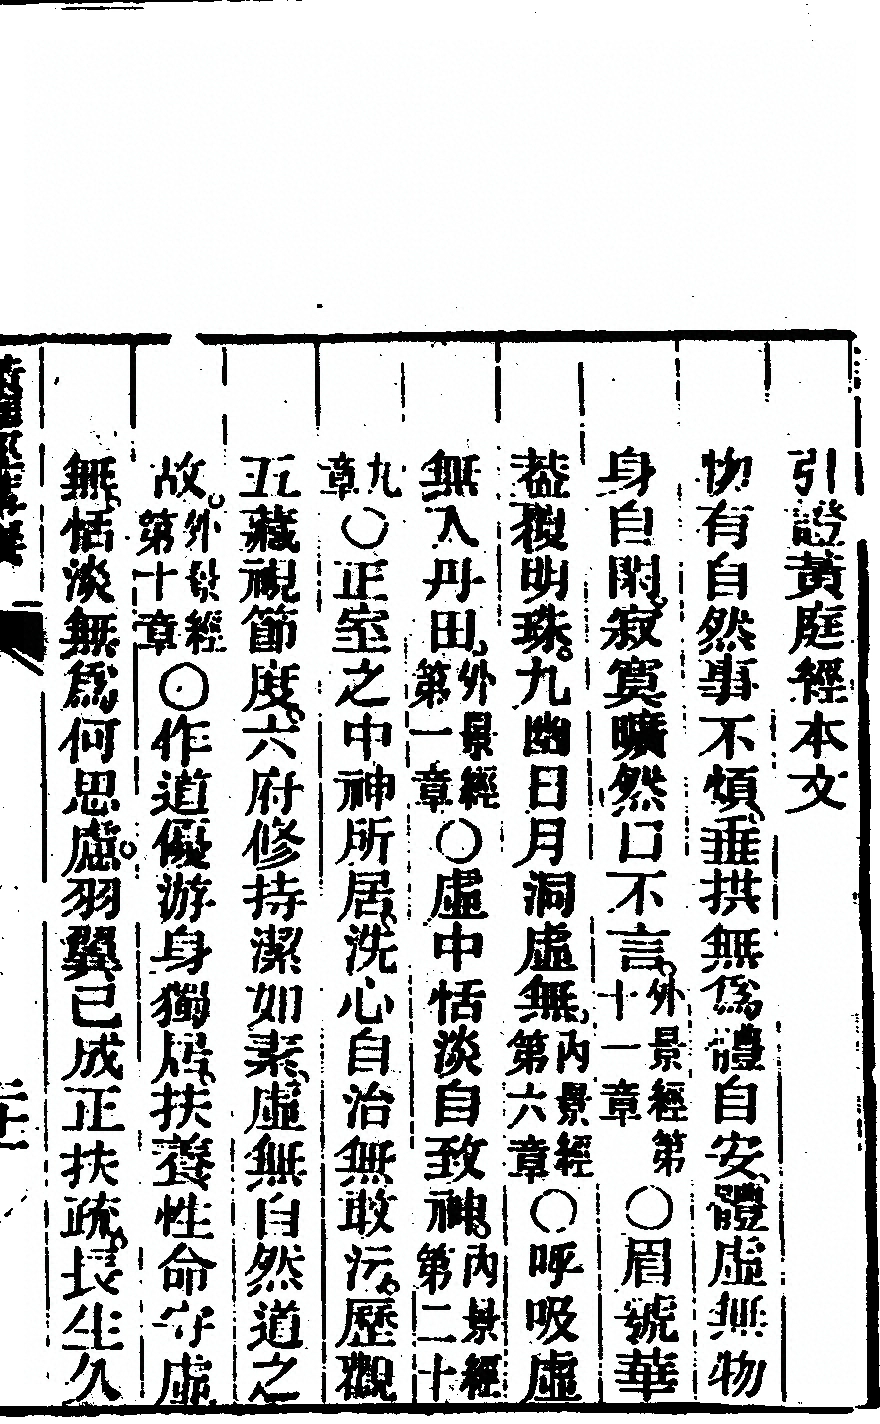 引證黃庭經本文
物有自然事不煩垂拱無爲體自安體虛無物
身自閑寂寞曠然口不言外景經第十一章○眉號華
葢覆明珠九幽日月洞虛無内景經第六章○呼吸虛
無入丹田外景經第一章○虛中恬淡自致神内景經第二十
九章○正室之中神所居洗心自治無敢污歷觀
五藏視節度六府修持潔如素虛無自然道之
故外景經第十章○作道優游身獨居扶養性命守虛
無恬淡無爲何思慮羽翼已成正扶疏長生久